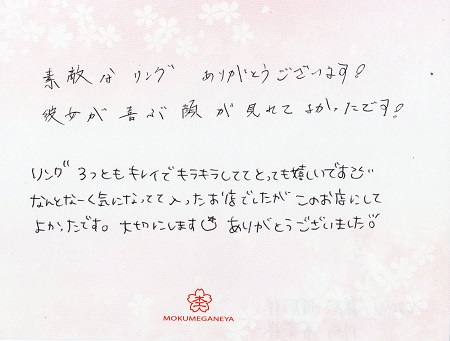 素敵なリング ありがとうございます!
彼女が喜ぶ顔が見れてよかったです!
リング3つともキレイでキラキラしててとっても嬉しいです
なんとなーく気になってて入ったお店でしたがこのお店にして
よかったです。大切にします ありがとうございました
MOKUMEGANEYA